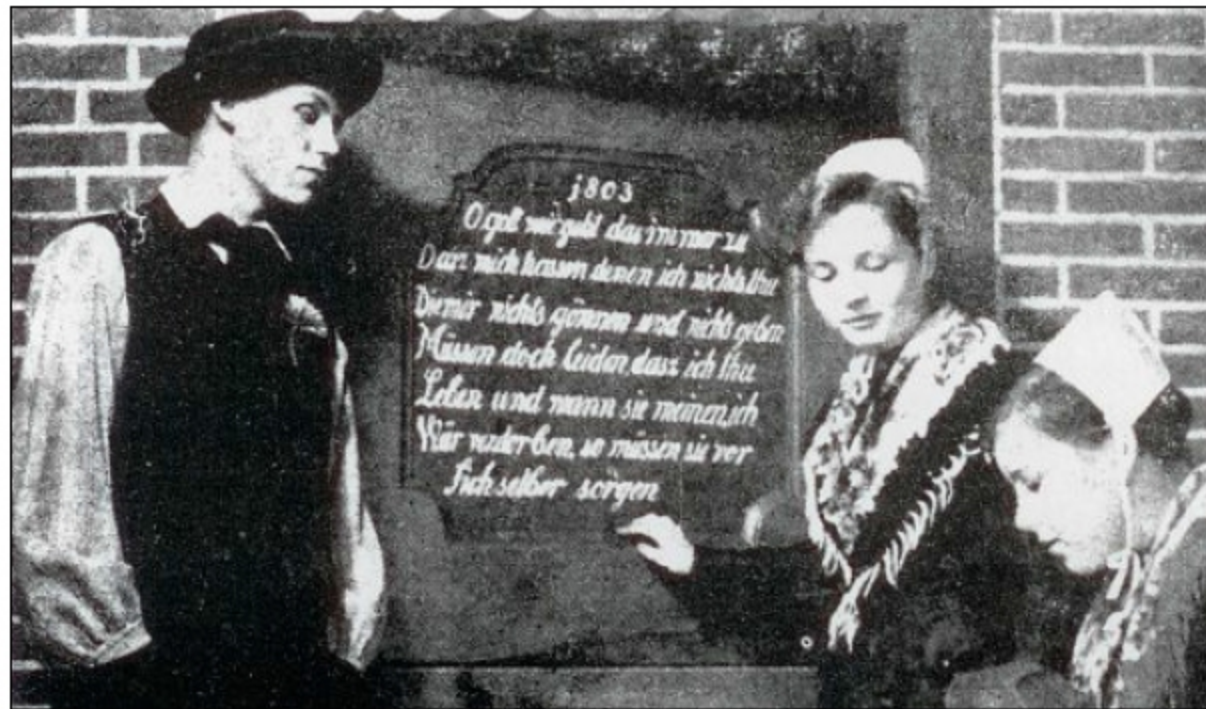 j803
O gott wie geht das immer zu
Dasz mich hassen denen ich nichts thu
Die mir nichts gönnen und nichts geben
Müssen doch leiden dasz ich thu
Leben und wann sie meinen, ich
Wär verderben, so müssen sie vor
Sich selber sorgen